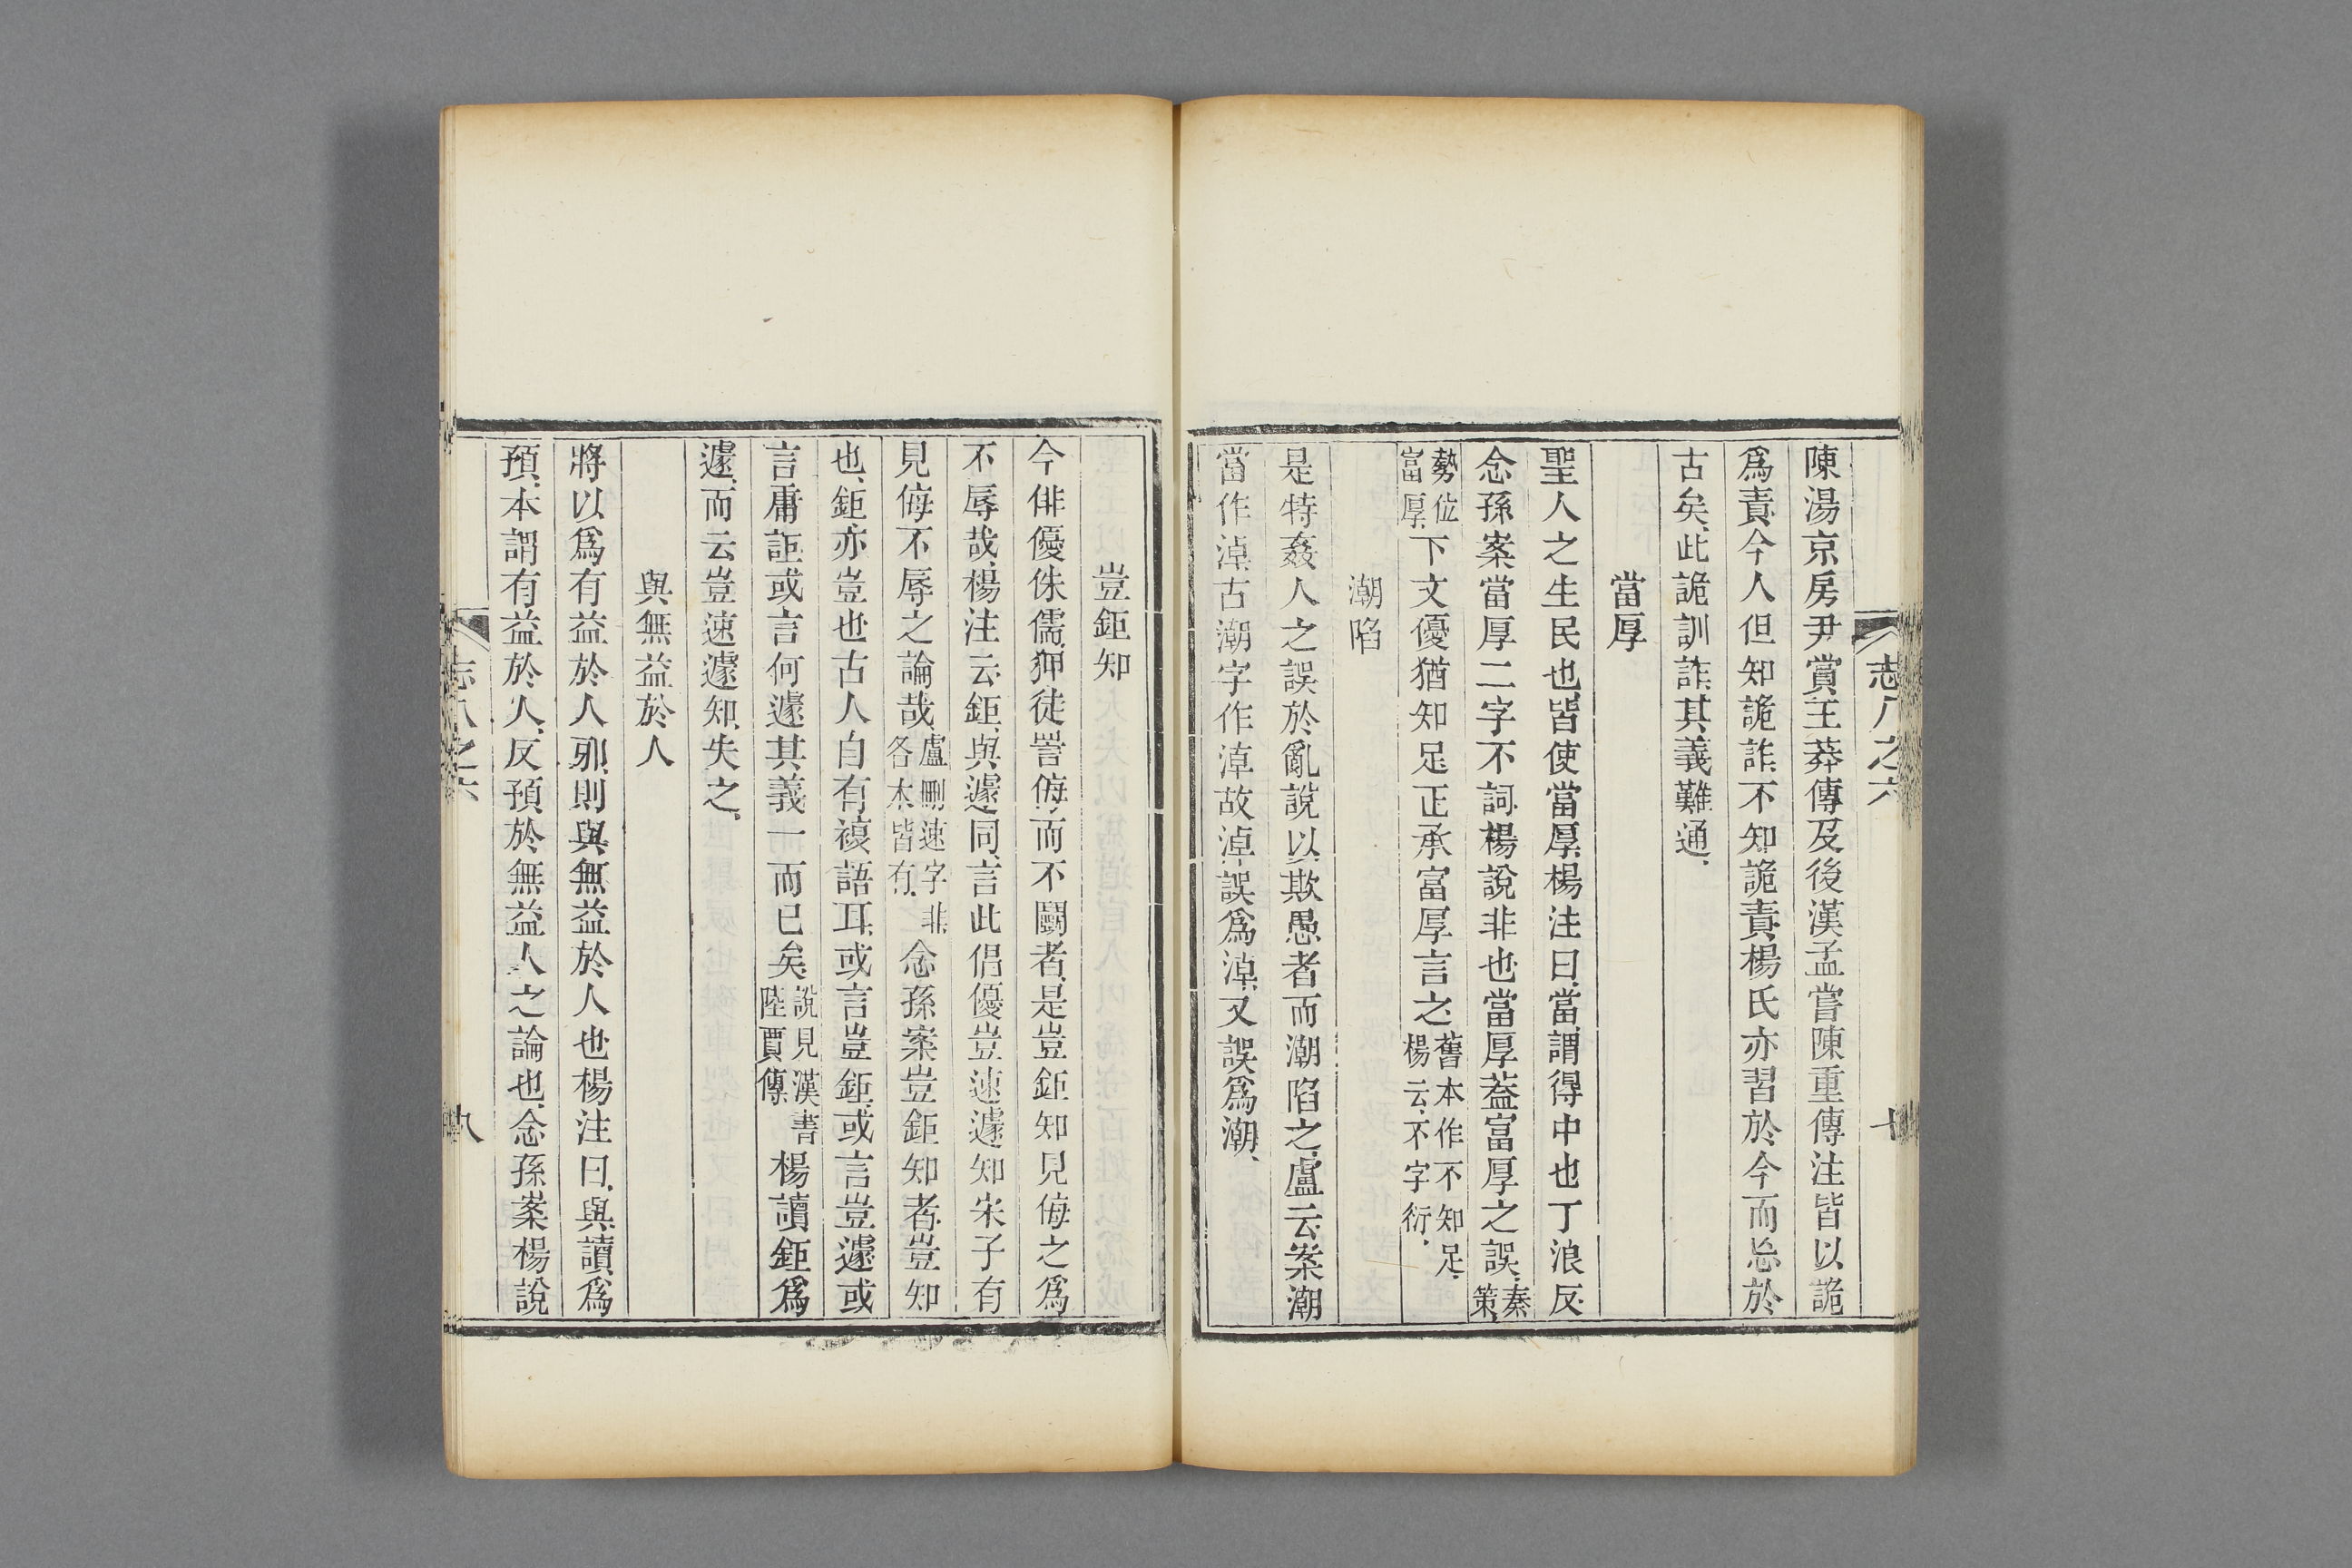 陳湯京房尹賞王莽傳及後漢孟嘗陳重傳注皆以詭
爲責今人但知詭詐不知詭責楊氏亦習於今而忘於
古矣此詭訓詐其義難通
當厚
聖人之生民也皆使當厚楊注曰當謂得中也丁浪反
念孫案當厚二字不詞楊說非也當厚葢富厚之誤秦策
勢位富厚下文優猶知足正承富厚言之舊本作不知足楊云不字衍
潮陷
是特姦人之誤於亂說以欺愚者而潮陷之盧云案潮
當作淖古潮字作淖故淖誤爲淖又誤爲潮
豈鉅知
今俳優侏儒狎徒詈侮而不鬭者是豈鉅知見侮之爲
不辱哉楊注云鉅與遽同言此倡優豈速遽知宋子有
見侮不辱之論哉盧刪速字非各本皆有念孫案豈鉅知者豈知
也鉅亦豈也古人自有複語耳或言豈鉅或言豈遽或
言庸詎或言何遽其義一而已矣說見漢書陸賈傳楊讀鉅爲
遽而云豈速遽知失之
與無益於人
將以爲有益於人邪則與無益於人也楊注曰與讀爲
預本謂有益於人反預於無益人之論也念孫案楊說
志八之六
九